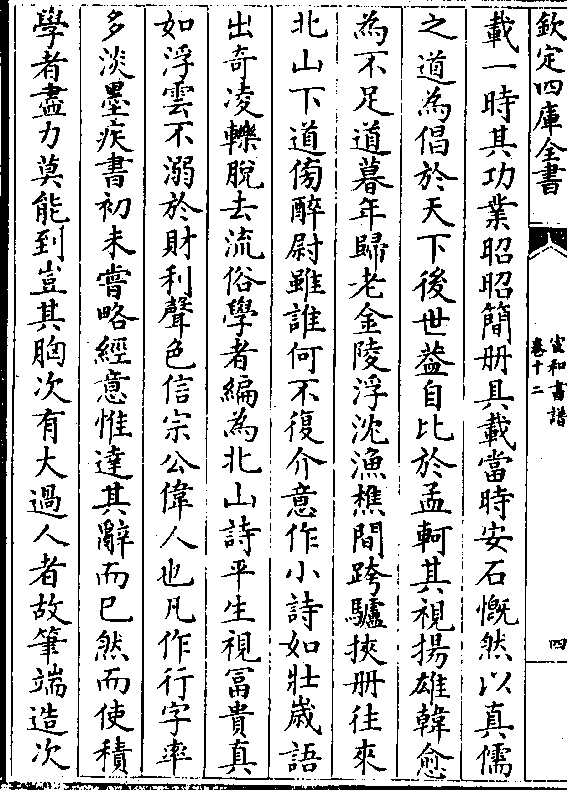 欽定四庫全書
宣和書譜
卷十二
四
載一時其功業昭昭簡册具載當時安石慨然以真儒
之道為倡於天下後世葢自比於孟軻其視揚雄韓愈
為不足道暮年歸老金陵浮沈漁樵間跨驢挾册往來
北山下道傍醉尉雖誰何不復介意作小詩如壯歲語
出奇凌轢脫去流俗學者編為北山詩平生視冨貴真
如浮雲不溺於財利聲色信宗公偉人也凡作行字率
多淡墨疾書初未嘗略經意惟達其辭而已然而使積
學者盡力莫能到豈其胸次有大過人者故筆端造次